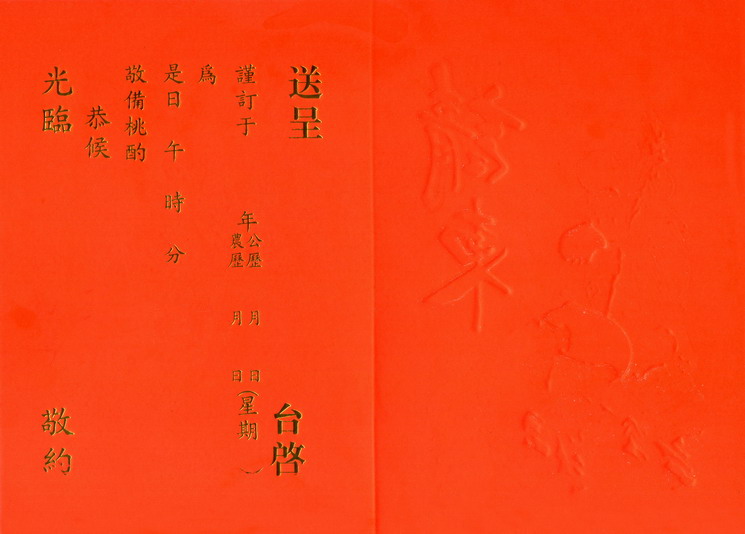 送呈 台啓
謹訂于 年 公歷 月 日
農歷 月 日 (星期 )
爲
是日 午 時 分
敬備桃酌
恭候
光臨 敬約